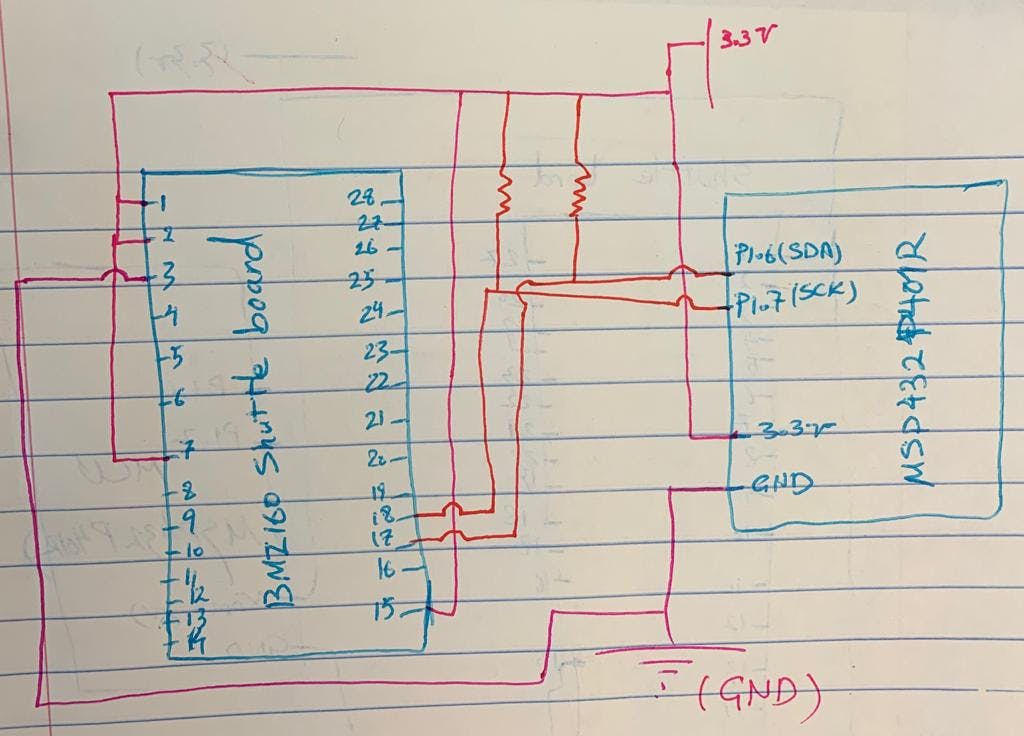 3.3V
1
2
3
4
5
6
7
8
9
10
11
12
13
14
BMZ160 Shuttle board
28
27
26
25
24
23
22
21
20
19
18
17
16
15
P1.6(SDA)
P1.7(SCK)
3.3V
GND
MSP432P401R
(GND)